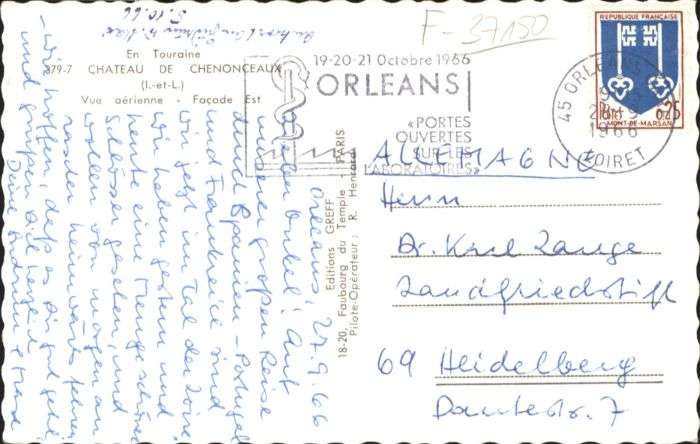 F-37150
Antwortlich
5.10.66
En Touraine
379-7 CHATEAU DE CHENONCEAUX
(I.-et-L.)
Vue aérienne - Façade Est
19-20-21 Octobre 1966
ORLEANS
«PORTES
OUVERTES
SUR LES
LABORATOIRES»
REPUBLIQUE FRANÇAISE
0,25
MONT-DE-MARSAN
45 ORLEANS
28-9
1966
LOIRET
Editions GREFF
18-20, Faubourg du Temple - PARIS
Pilote-Opérateur : R. Henrard
Orléans, 27.9.66
Lieber Onkel! Auf
unserer großen Reise
durch Spanien - Portugal
und Frankreich sind
wir jetzt im Tal der Loire,
wir haben gestern und
heute eine Menge schöner
Schlösser gesehen, und
wollen von morgen an
wieder heimwärts fahren,
wir hoffen, daß es Dir gut geht,
und grüßen Dich herzlich
Deine
ALLEMAGNE
Herrn
Dr. Karl Lange
Landfriedstift
69 Heidelberg
Dantestr. 7